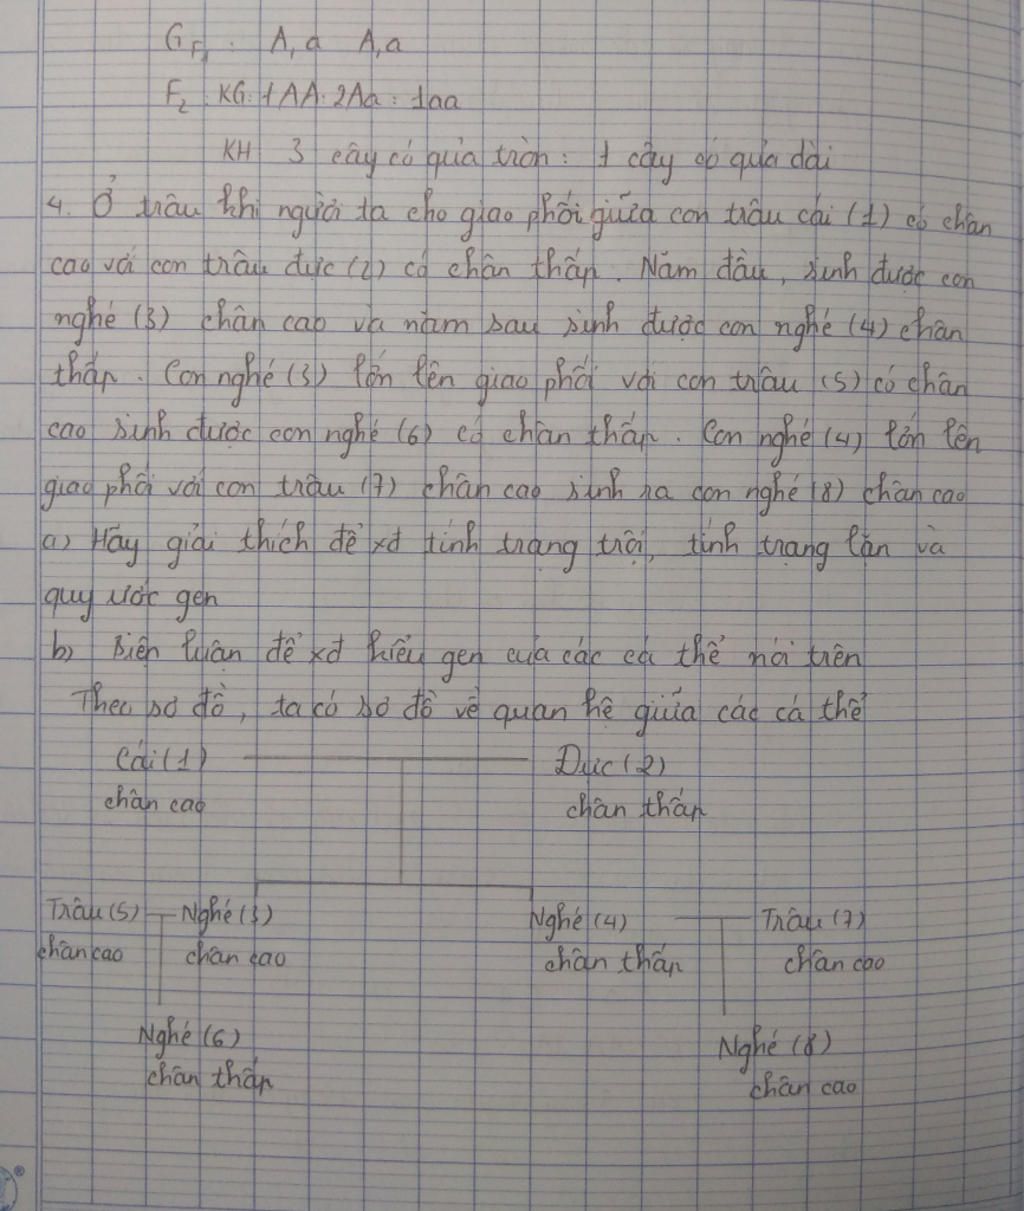 G F₁ : A, a A, a
F₂ : KG : 1AA : 2Aa : 1aa
KH 3 cây có quả tròn : 1 cây có quả dài
4. Ở trâu khi người ta cho giao phối giữa con trâu cái (1) có chân
cao với con trâu đực (2) có chân thấp. Năm đầu, sinh được con
nghé (3) chân cao và năm sau sinh được con nghé (4) chân
thấp. Con nghé (3) lớn lên giao phối với con trâu (5) có chân
cao sinh được con nghé (6) có chân thấp. Con nghé (4) lớn lên
giao phối với con trâu (7) chân cao sinh ra con nghé (8) chân cao
a) Hãy giải thích để xđ tính trạng trội, tính trạng lặn và
quy ước gen
b) Biện luận để xđ kiểu gen của các cá thể nói trên
Theo sơ đồ, ta có sơ đồ về quan hệ giữa các cá thể
Cái (1) Đực (2)
chân cao chân thấp
Trâu (5) Nghé (3) Nghé (4) Trâu (7)
chân cao chân cao chân thấp chân cao
Nghé (6) Nghé (8)
chân thấp chân cao